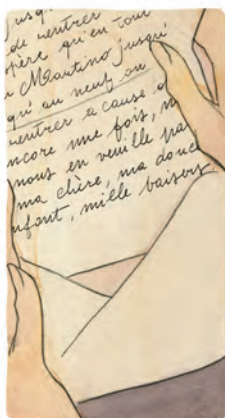 de rentrer
espère qu'en tout
Martino jusqu'
qu'au neuf ou
rentrer a cause d
ncore une fois, n
nous en veuille pa
ma chère, ma douc
nfant, mille baisers